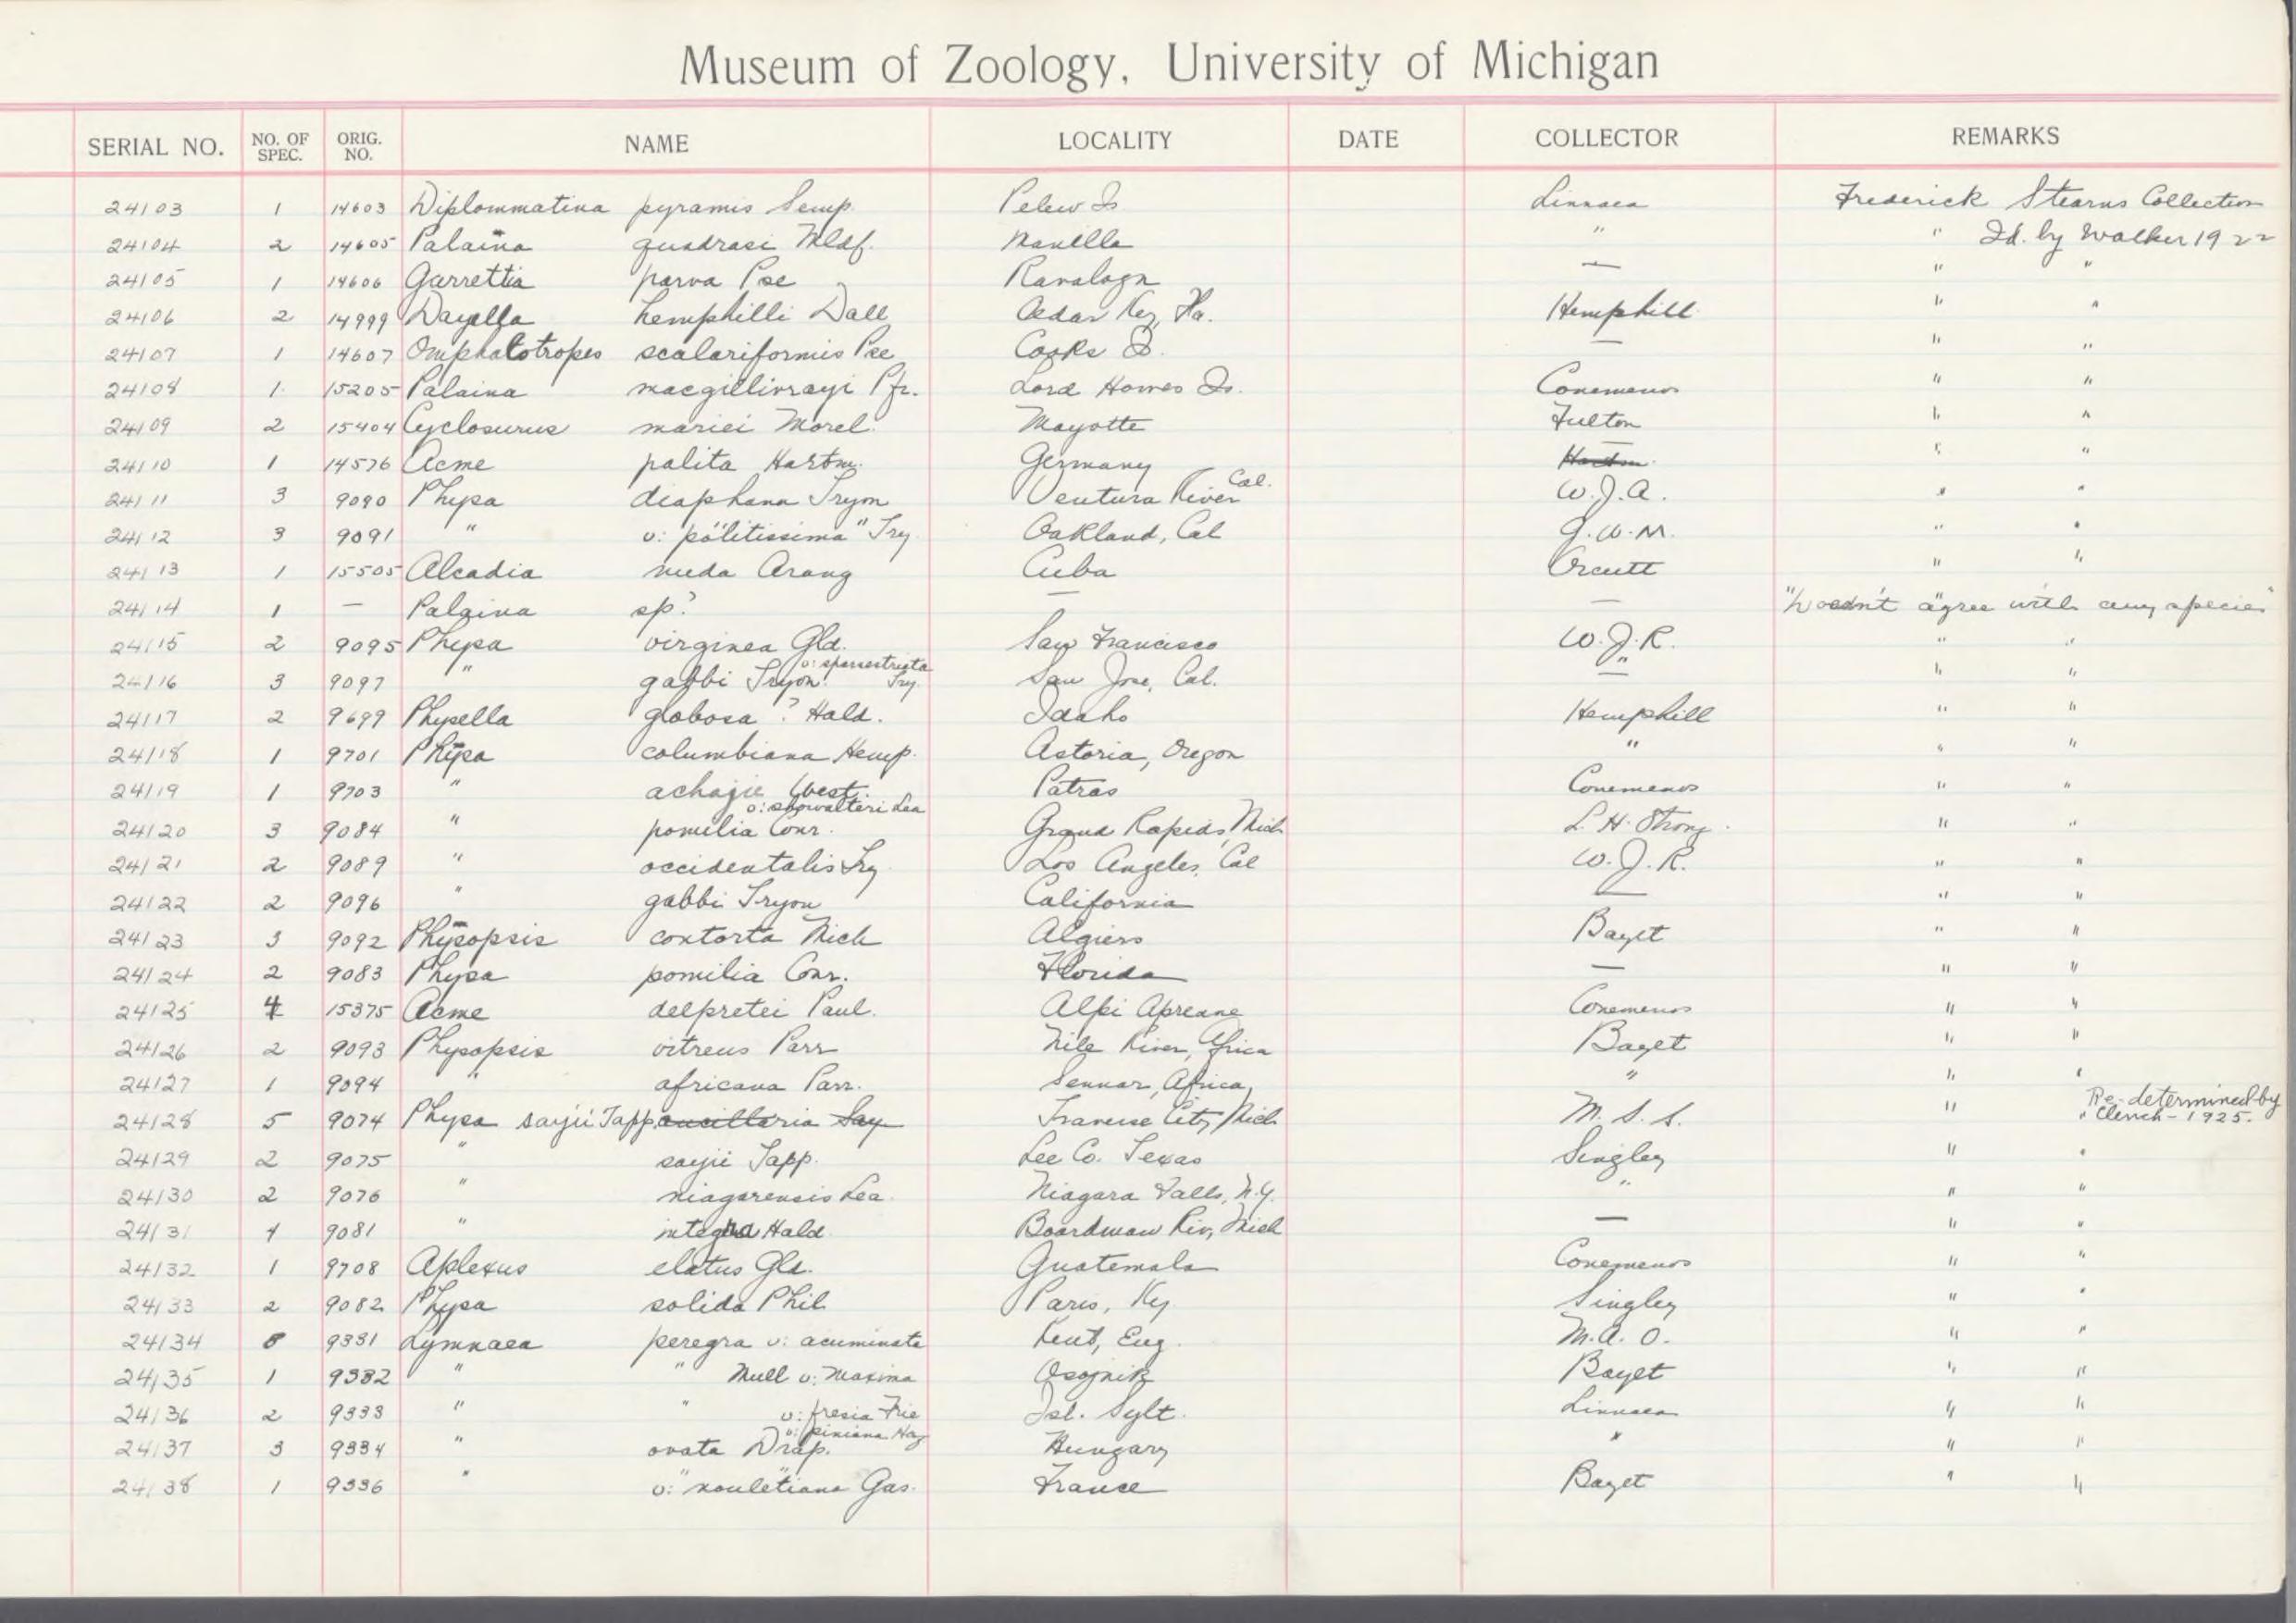 Museum of Zoology, University of Michigan
SERIAL NO. NO. OF SPEC. ORIG. NO. NAME LOCALITY DATE COLLECTOR REMARKS
24103 1 14603 Diplommatina pyramis Semp. Pelew Is Linnaea Frederick Stearns Collection
24104 2 14605 Palaina quadrasi Mldf. Manilla " " Id. by Walker 1922
24105 1 14606 Garrettia parva Pse — " "
24106 2 14999 Dayella hemphilli Dall Cedar Key, Fla. Hemphill " "
24107 1 14607 Omphalotropes scalariformis Pse Cooks Is. — " "
24108 1 15205 Palaina macgillivrayi Pfr. Lord Howes Is. Conemenos " "
24109 2 15404 Cyclosurus mariei Morel. Mayotte Fulton " "
24110 1 14576 Acme polita Hartm. Germany Hartm. " "
24111 3 9090 Physa diaphana Tryon Ventura River Cal. W.J.R. " "
24112 3 9091 " v: "politissima" Try Oakland, Cal G.W.M. " "
24113 1 15505 Alcadia nuda Arang Cuba Orcutt " "
24114 1 — Palaina sp? — — "Doesn't agree with any species"
24115 2 9095 Physa virginea Gld. San Francisco W.J.R. " "
24116 3 9097 " gabbi Tryon v: sparsestriata Try. San Jose, Cal. " " "
24117 2 9699 Physella globosa? Hald. Idaho Hemphill " "
24118 1 9701 Physa columbiana Hemp. Astoria, Oregon " " "
24119 1 9703 " Patras Conemenos " "
24120 3 9084 " pomilia Conr. v: showalteri Lea Grand Rapids, Mich L. H. Strong. " "
24121 2 9089 " occidentalis Try Los Angeles, Cal W.J.R. " "
24122 2 9096 " gabbi Tryon California — " "
24123 3 9092 Physopsis contorta Mich Algiers Bayet " "
24124 2 9083 Physa pomilia Conr. Florida — " "
24125 4 15375 Acme delpretei Paul. Alpi Apreane Conemenos " "
24126 2 9093 Physopsis vitreus Parr Nile River, Africa Bayet " "
24127 1 9094 " africana Parr. Sennar, Africa " " "
24128 5 9074 Physa sayii Tapp. ancillaria Say Traverse City, Mich M. S. S. " " Re-determined by Clench - 1925.
24129 2 9075 " sayii Tapp. Lee Co. Texas Singley " "
24130 2 9076 " niagarensis Lea. Niagara Falls, N.Y. " " "
24131 4 9081 " integra Hald Boardman Riv, Mich — " "
24132 1 9708 Aplexus elatus Gld. Guatemala Conemenos " "
24133 2 9082 Physa solida Phil Paris, Ky Singley " "
24134 8 9331 Lymnaea peregra v: acuminata Kent, Eng. M.A.O. " "
24135 1 9382 " " Mull v: maxima Osojnik Bayet " "
24136 2 9333 " " v: fresia Isl. Sylt. Linnaea " "
24137 3 9334 " ovata Drap. v: Hungary " " "
24138 1 9336 " v: "nouletiana Gas. France Bayet " "